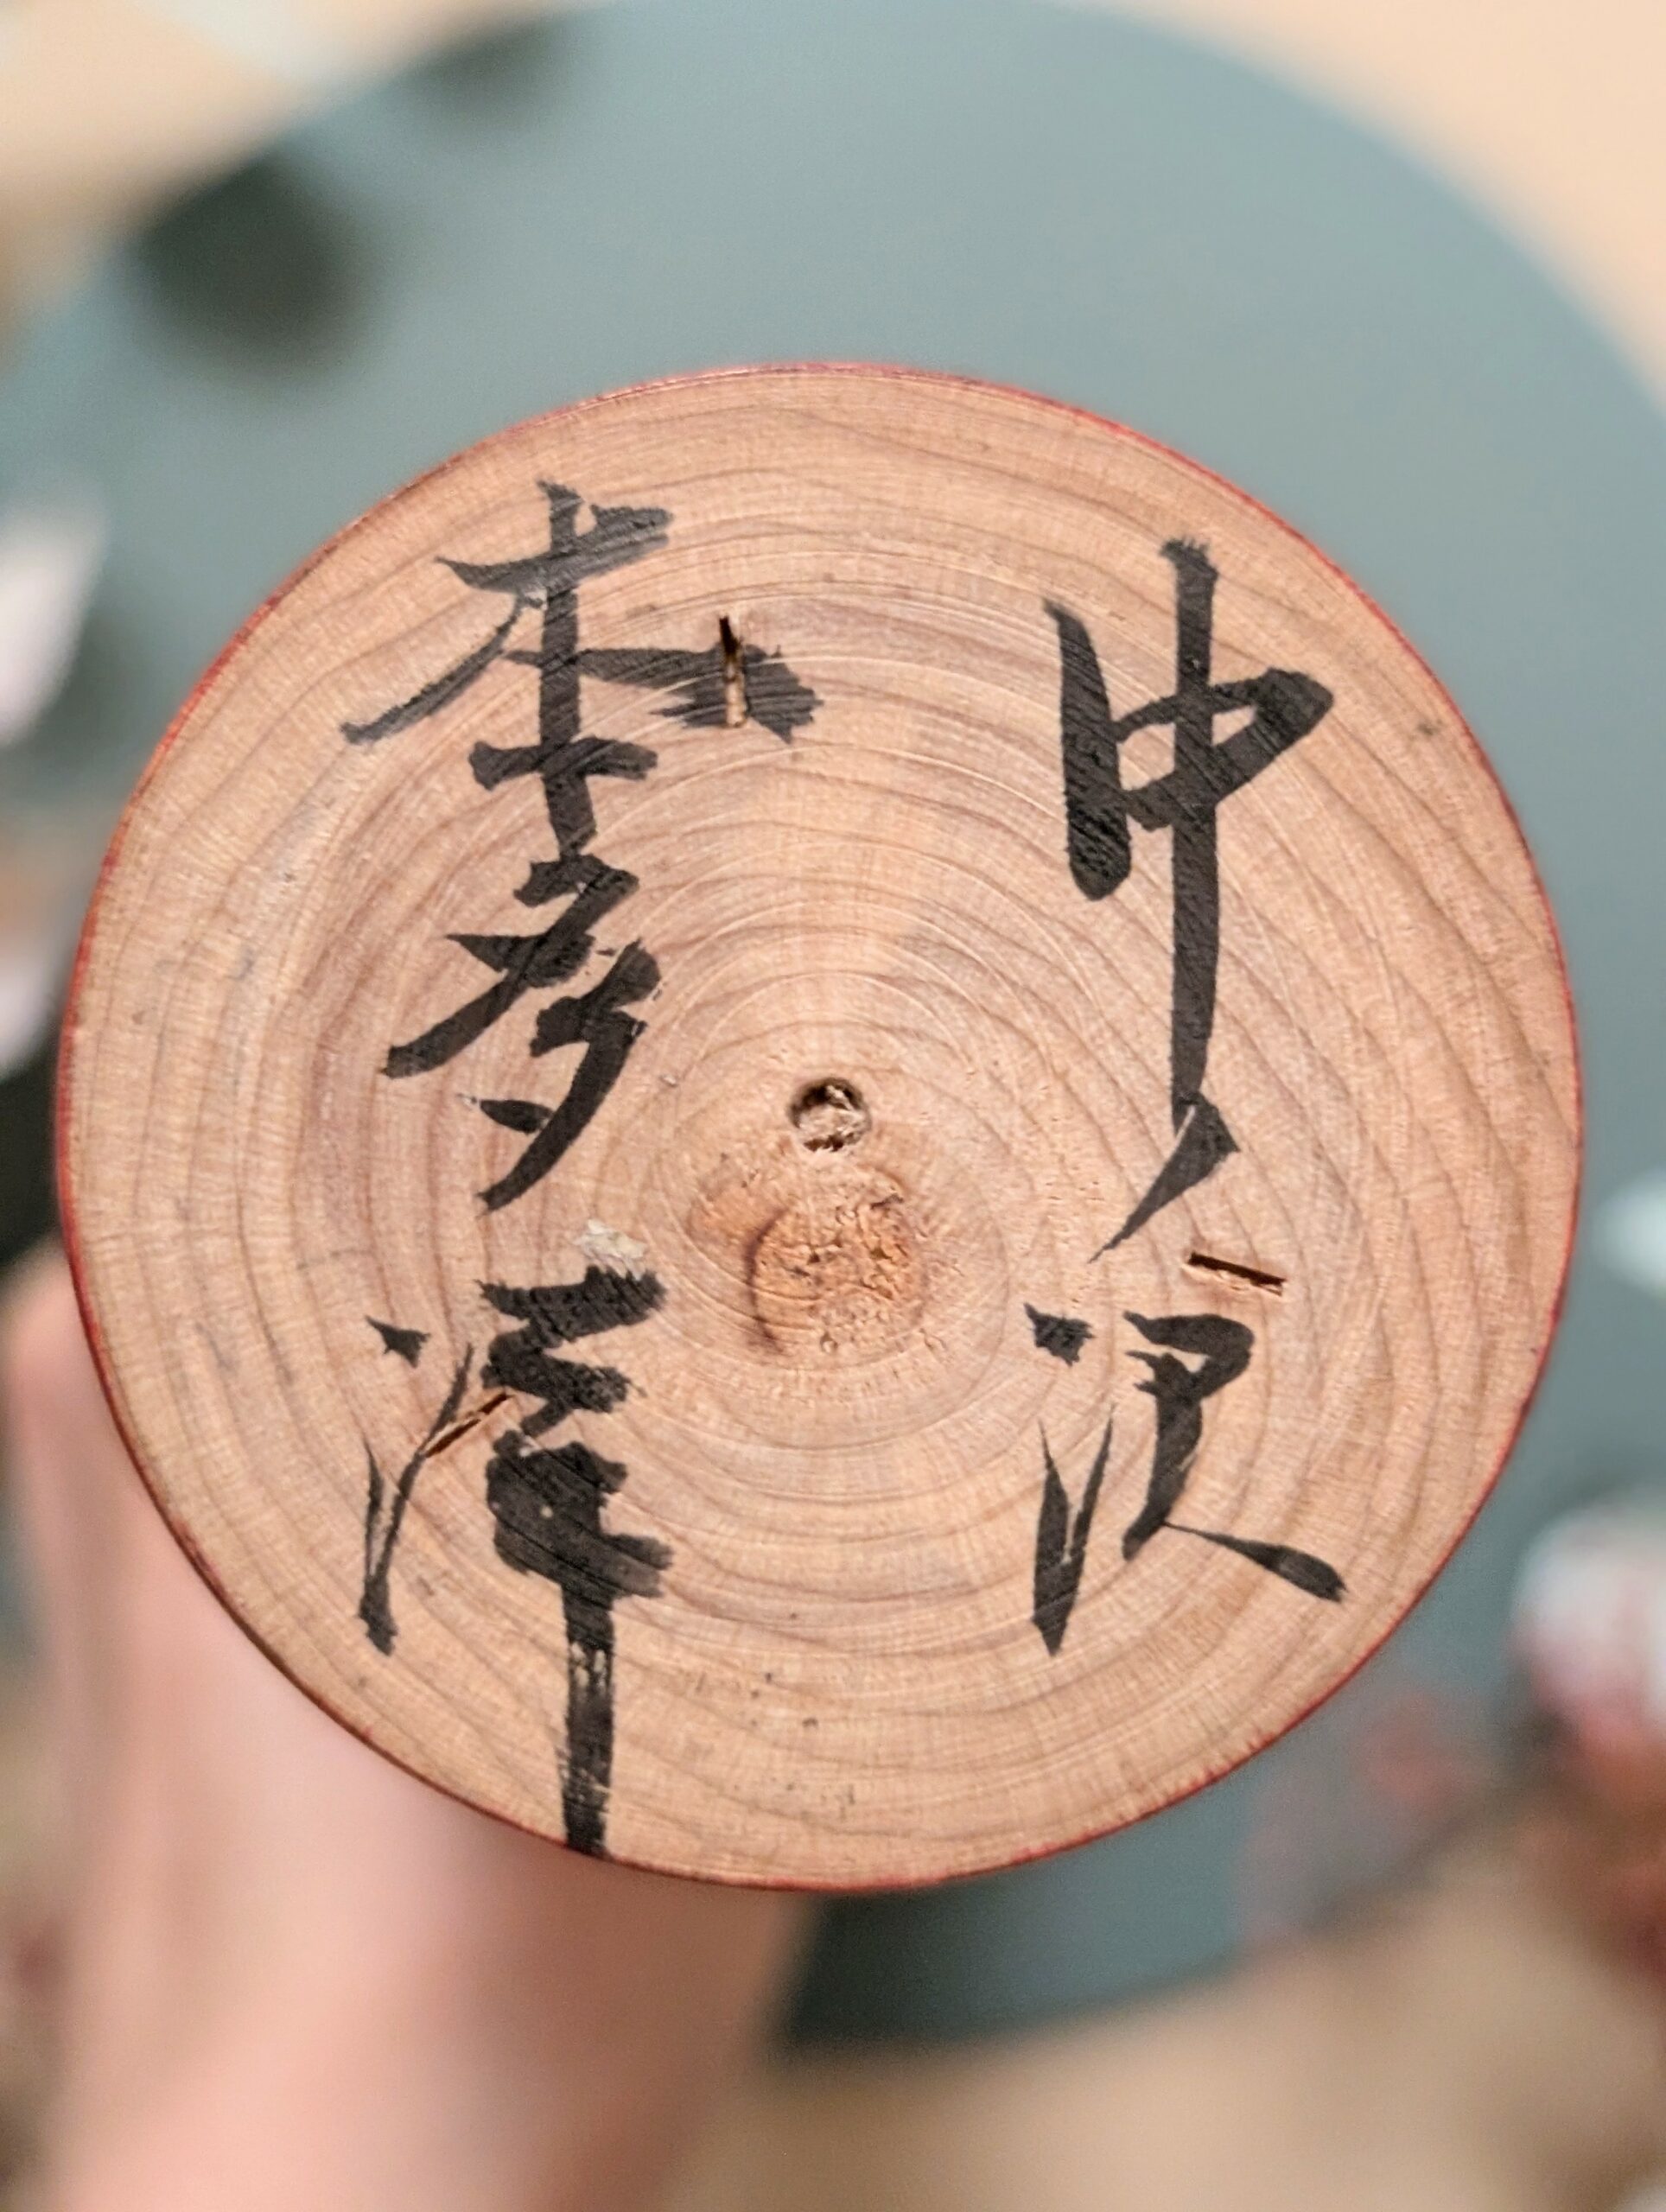 中ノ沢
本多洋